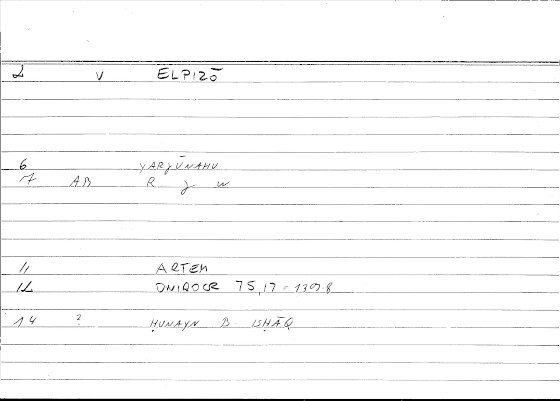 2 V ELPIZŌ
6 YARJŪNAHU
7 AB R J W
11 ARTEM
12 ONIROCR 75,17 = 130.8
14 ? ḤUNAYN B ISḤĀQ